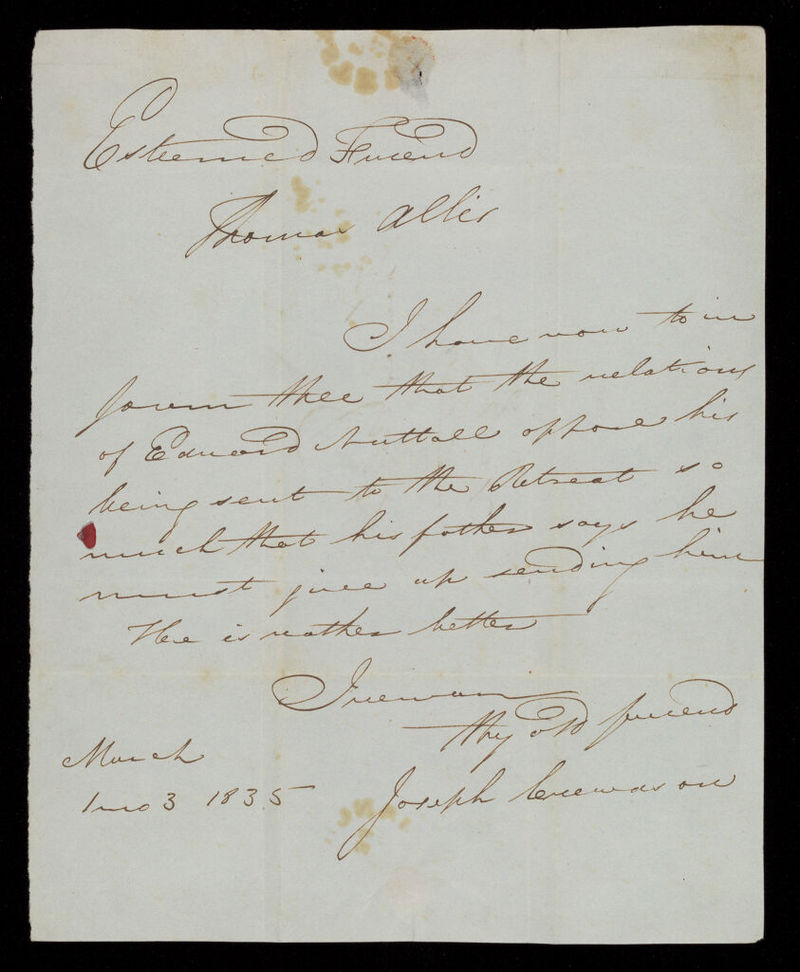 Esteemed Friend
Thomas Allis
I have now to in
form thee that the relations
of Edward Nuttall oppose his
being sent to the Retreat so
much that his father says he
must give up sending him
He is rather better
I remain
thy old friend
March
1 mo 3 1835
Joseph